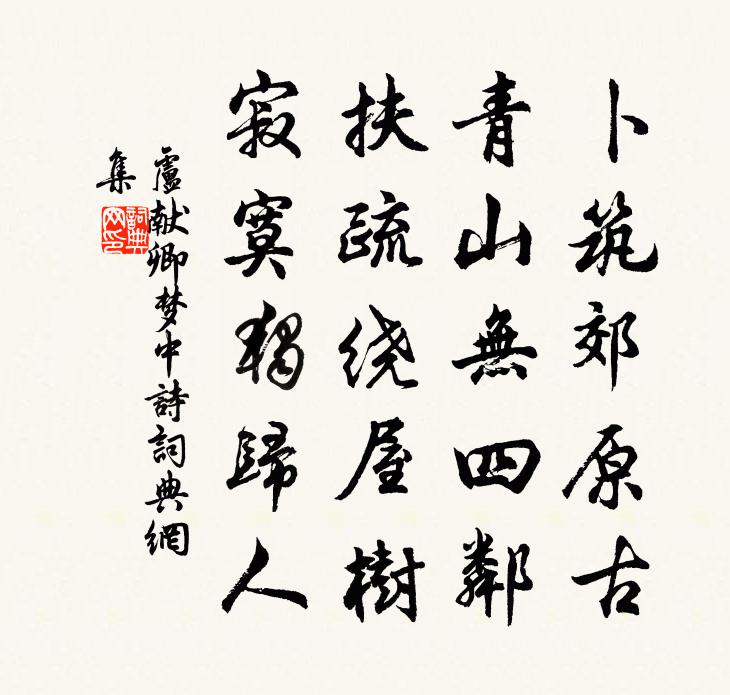 卜筑郊原古
青山無四鄰
扶疏绕屋樹
寂寞獨歸人
盧献卿梦中詩詞典網
集
詞典網印